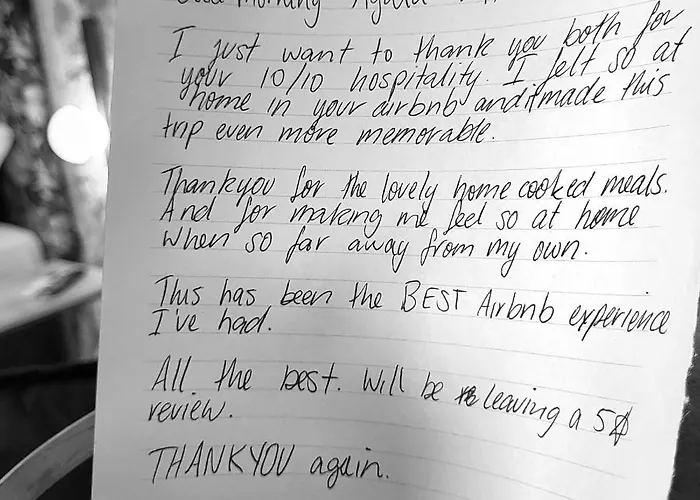 I just want to thank you both for
your 10/10 hospitality. I felt so at
home in your airbnb and it made this
trip even more memorable.
Thankyou for the lovely home cooked meals.
And for making me feel so at home
when so far away from my own.
This has been the BEST Airbnb experience
I've had.
All the best. Will be leaving a 5☆
review.
THANKYOU again.